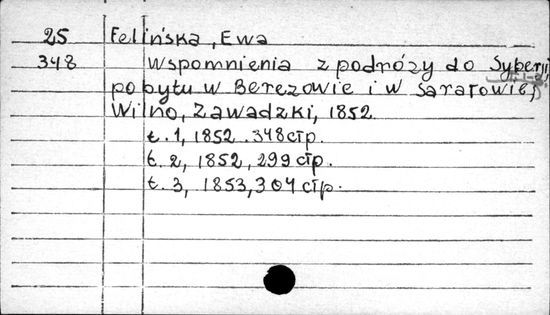 25 Felińska, Ewa
348 Wspomnienia z podróży do Syberji,
pobytu w Berezowie i w Saratowie,
Wilno, Zawadzki, 1852
t. 1, 1852. 348 стр.
t. 2, 1852, 299 стр.
t. 3, 1853, 304 стр.